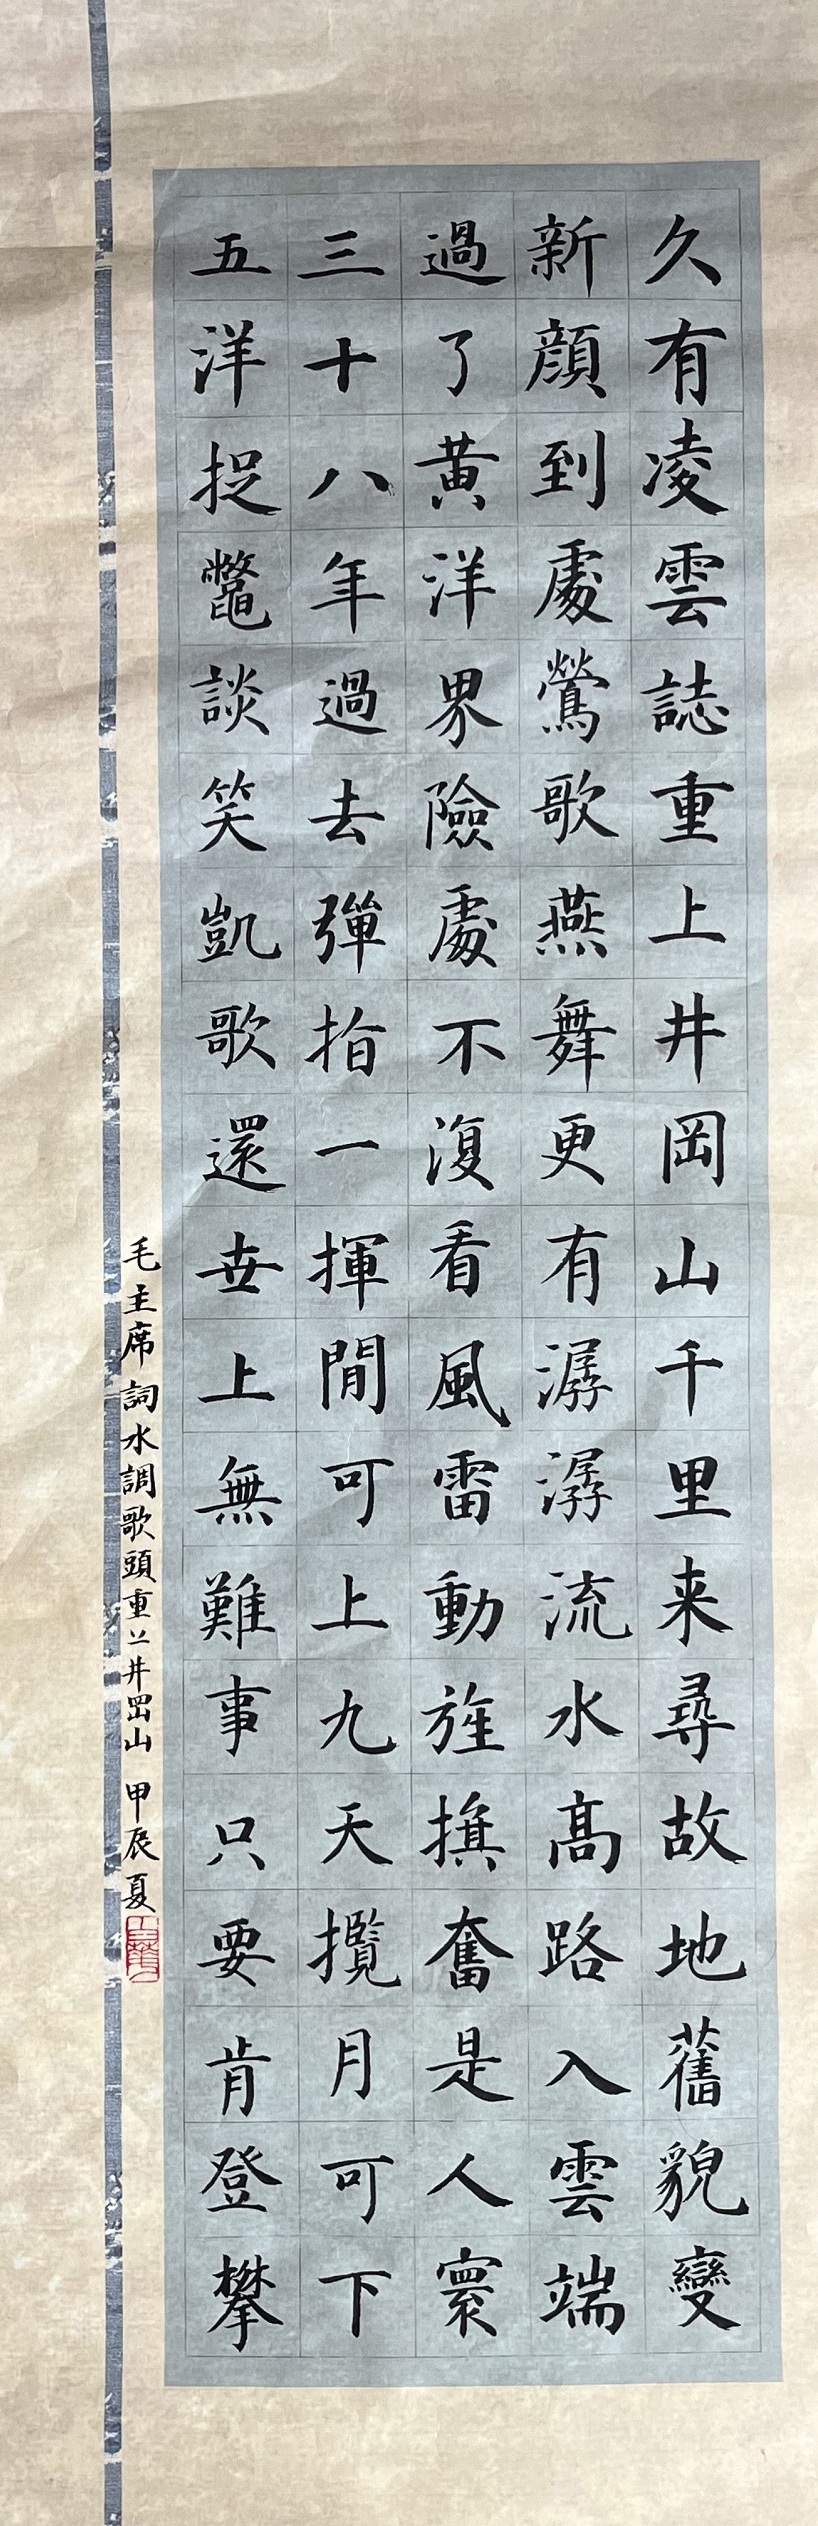 久有凌雲誌重上井岡山千里来尋故地舊貌變
新顔到處鶯歌燕舞更有潺潺流水髙路入雲端
過了黄洋界險處不復看風雷動旌旗奮是人寰
三十八年過去彈指一揮間可上九天攬月可下
五洋捉鼈談笑凱歌還世上無難事只要肯登攀
毛主席詞水調歌頭重上井岡山 甲辰夏